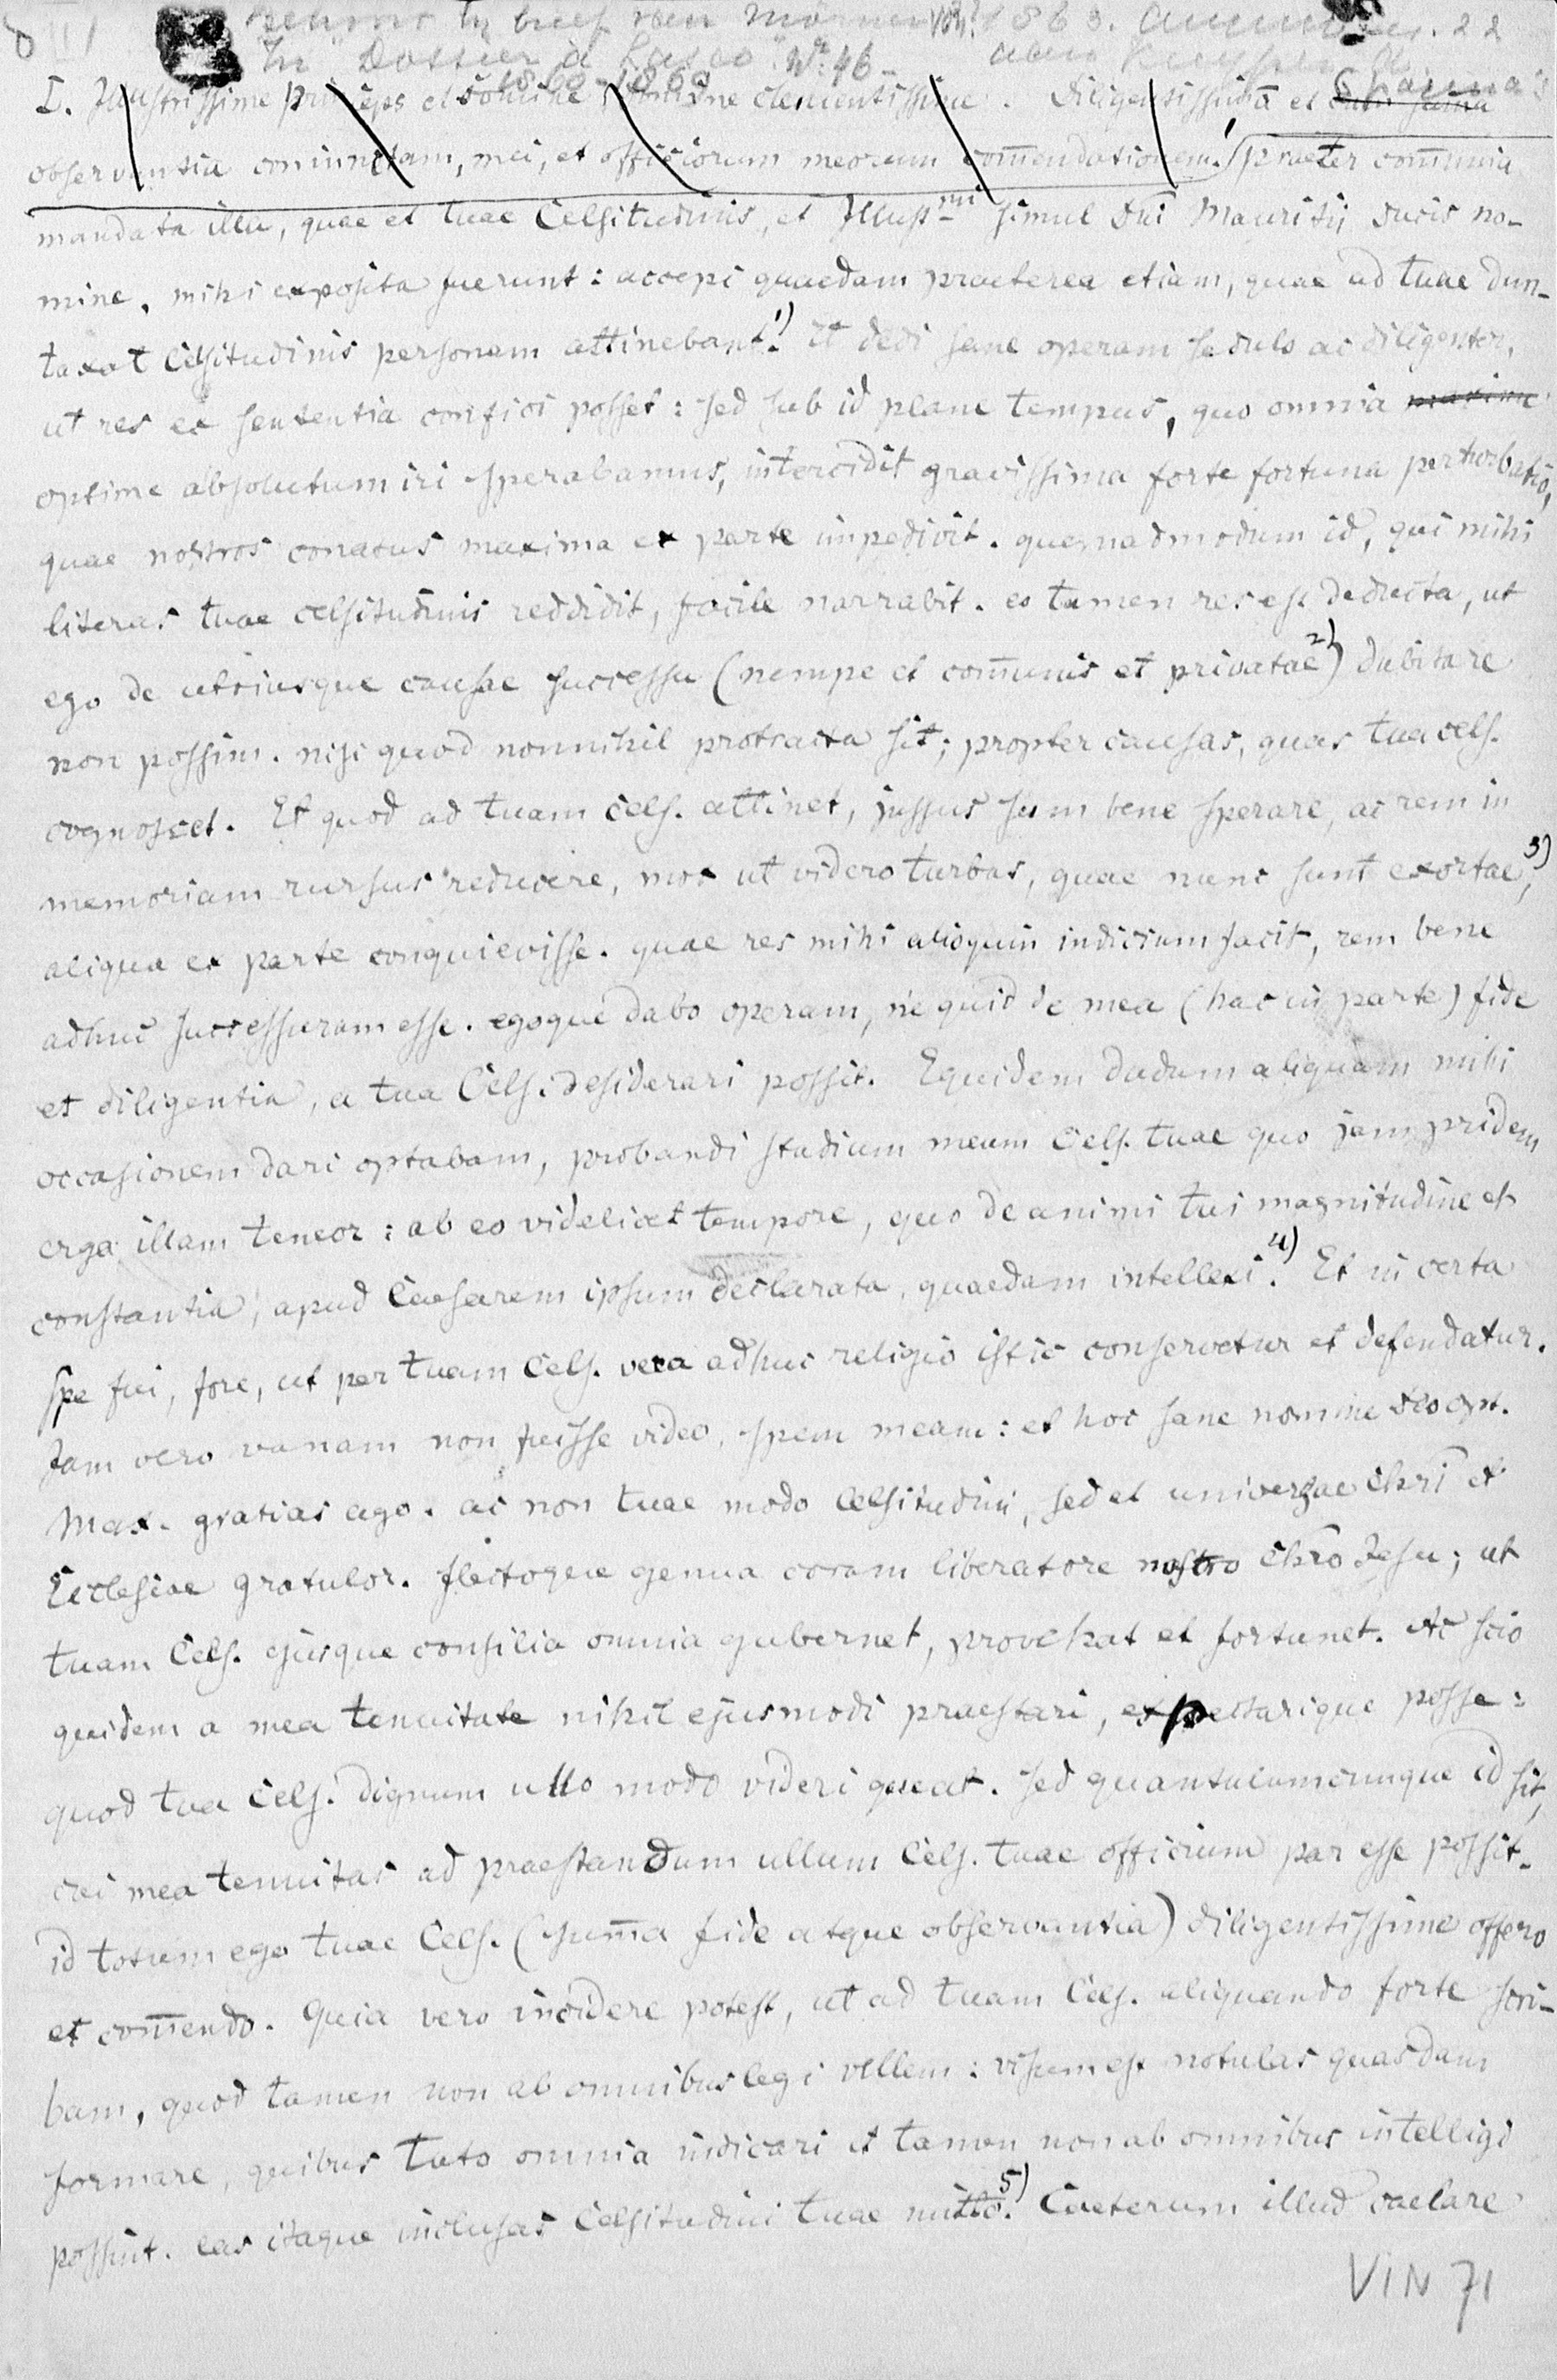 brief van 1863.
In "Dossier à Lasco" No: 46 - aan
1860-1860
I. Illustrissime princeps et domine, domine clementissime. Diligentissimā et cum summa
observantia coniunctam, mei, et officiorum meorum com̄endationem. praeter com̄unia
mandata illa, quae et tuae Celsitudinis, et Illuss.mi simul Dn̄i Mauritij ducis no-
mine, mihi exposita fuerunt: accepi quaedam praeterea etiam, quae ad tuae dun-
taxat Celsitudinis personam attinebant.1) Et dedi sane operam sedulo ac diligenter,
ut res ex sententia confici posset: sed sub id plane tempus, quo omnia maxime
optime absolutum iri sperabamus, intercidit gravissima forte fortuna perturbatio,
quae nostros conatus maxima ex parte impedivit. quemadmodum id, qui mihi
literas tuae celsitudinis reddidit, facile narrabit. eo tamen res est deducta, ut
ego de utriusque causae successu (nempe et com̄unis et privatae2)) dubitare
non possim. nisi quod nonnihil protracta sit; propter causas, quas tua cels.
cognoscet. Et quod ad tuam cels. attinet, jussus sum bene sperare, ac rem in
memoriam rursus reducere, mox ut videro turbas, quae nunc sunt exortae,3)
aliqua ex parte conquievisse. quae res mihi alioquin indicium facit, rem bene
adhuc successuram esse. egoque dabo operam, ne quid de mea (hac in parte) fide
et diligentia, a tua Cels. desiderari possit. Equidem dudum aliquam mihi
occasionem dari optabam, probandi studium meum Cels. tuae quo jam pridem
erga illam teneor: ab eo videlicet tempore, quo de animi tui magnitudine et
constantia, apud Caesarem ipsum declarata, quaedam intellexi.4) Et in certa
spe fui, fore, ut per tuam Cels. vera adhuc religio istic conservetur et defendatur.
Jam vero vanam non fuisse video, spem meam: et hoc sane nomine deo opt.
Max. gratias ago. ac non tuae modo Celsitudini, sed et universae Chrī et
Ecclesiae gratulor. flectoque genua coram liberatore nostro Chrō Jesu; ut
tuam Cels. ejusque consilia omnia gubernet, provehat et fortunet. Ac scio
quidem a mea tenuitate nihil ejusmodi praestari, expectarique posse:
quod tua Cels. dignum ullo modo videri queat. sed quantulumcunque id sit,
cui mea tenuitas ad praestandum ullum Cels. tuae officium par esse possit.
id totum ego tuae Cels. (sum̄a fide atque observantia) diligentissime offero
et com̄endo. Quia vero incidere potest, ut ad tuam Cels. aliquando forte scri-
bam, quod tamen non ab omnibus legi vellem: visum est notulas quasdam
formare, quibus tuto omnia indicari et tamen non ab omnibus intelligi
possint. eas itaque inclusas Celsitudini tuae mitto.5) Caeterum illud caelare
VIN 71